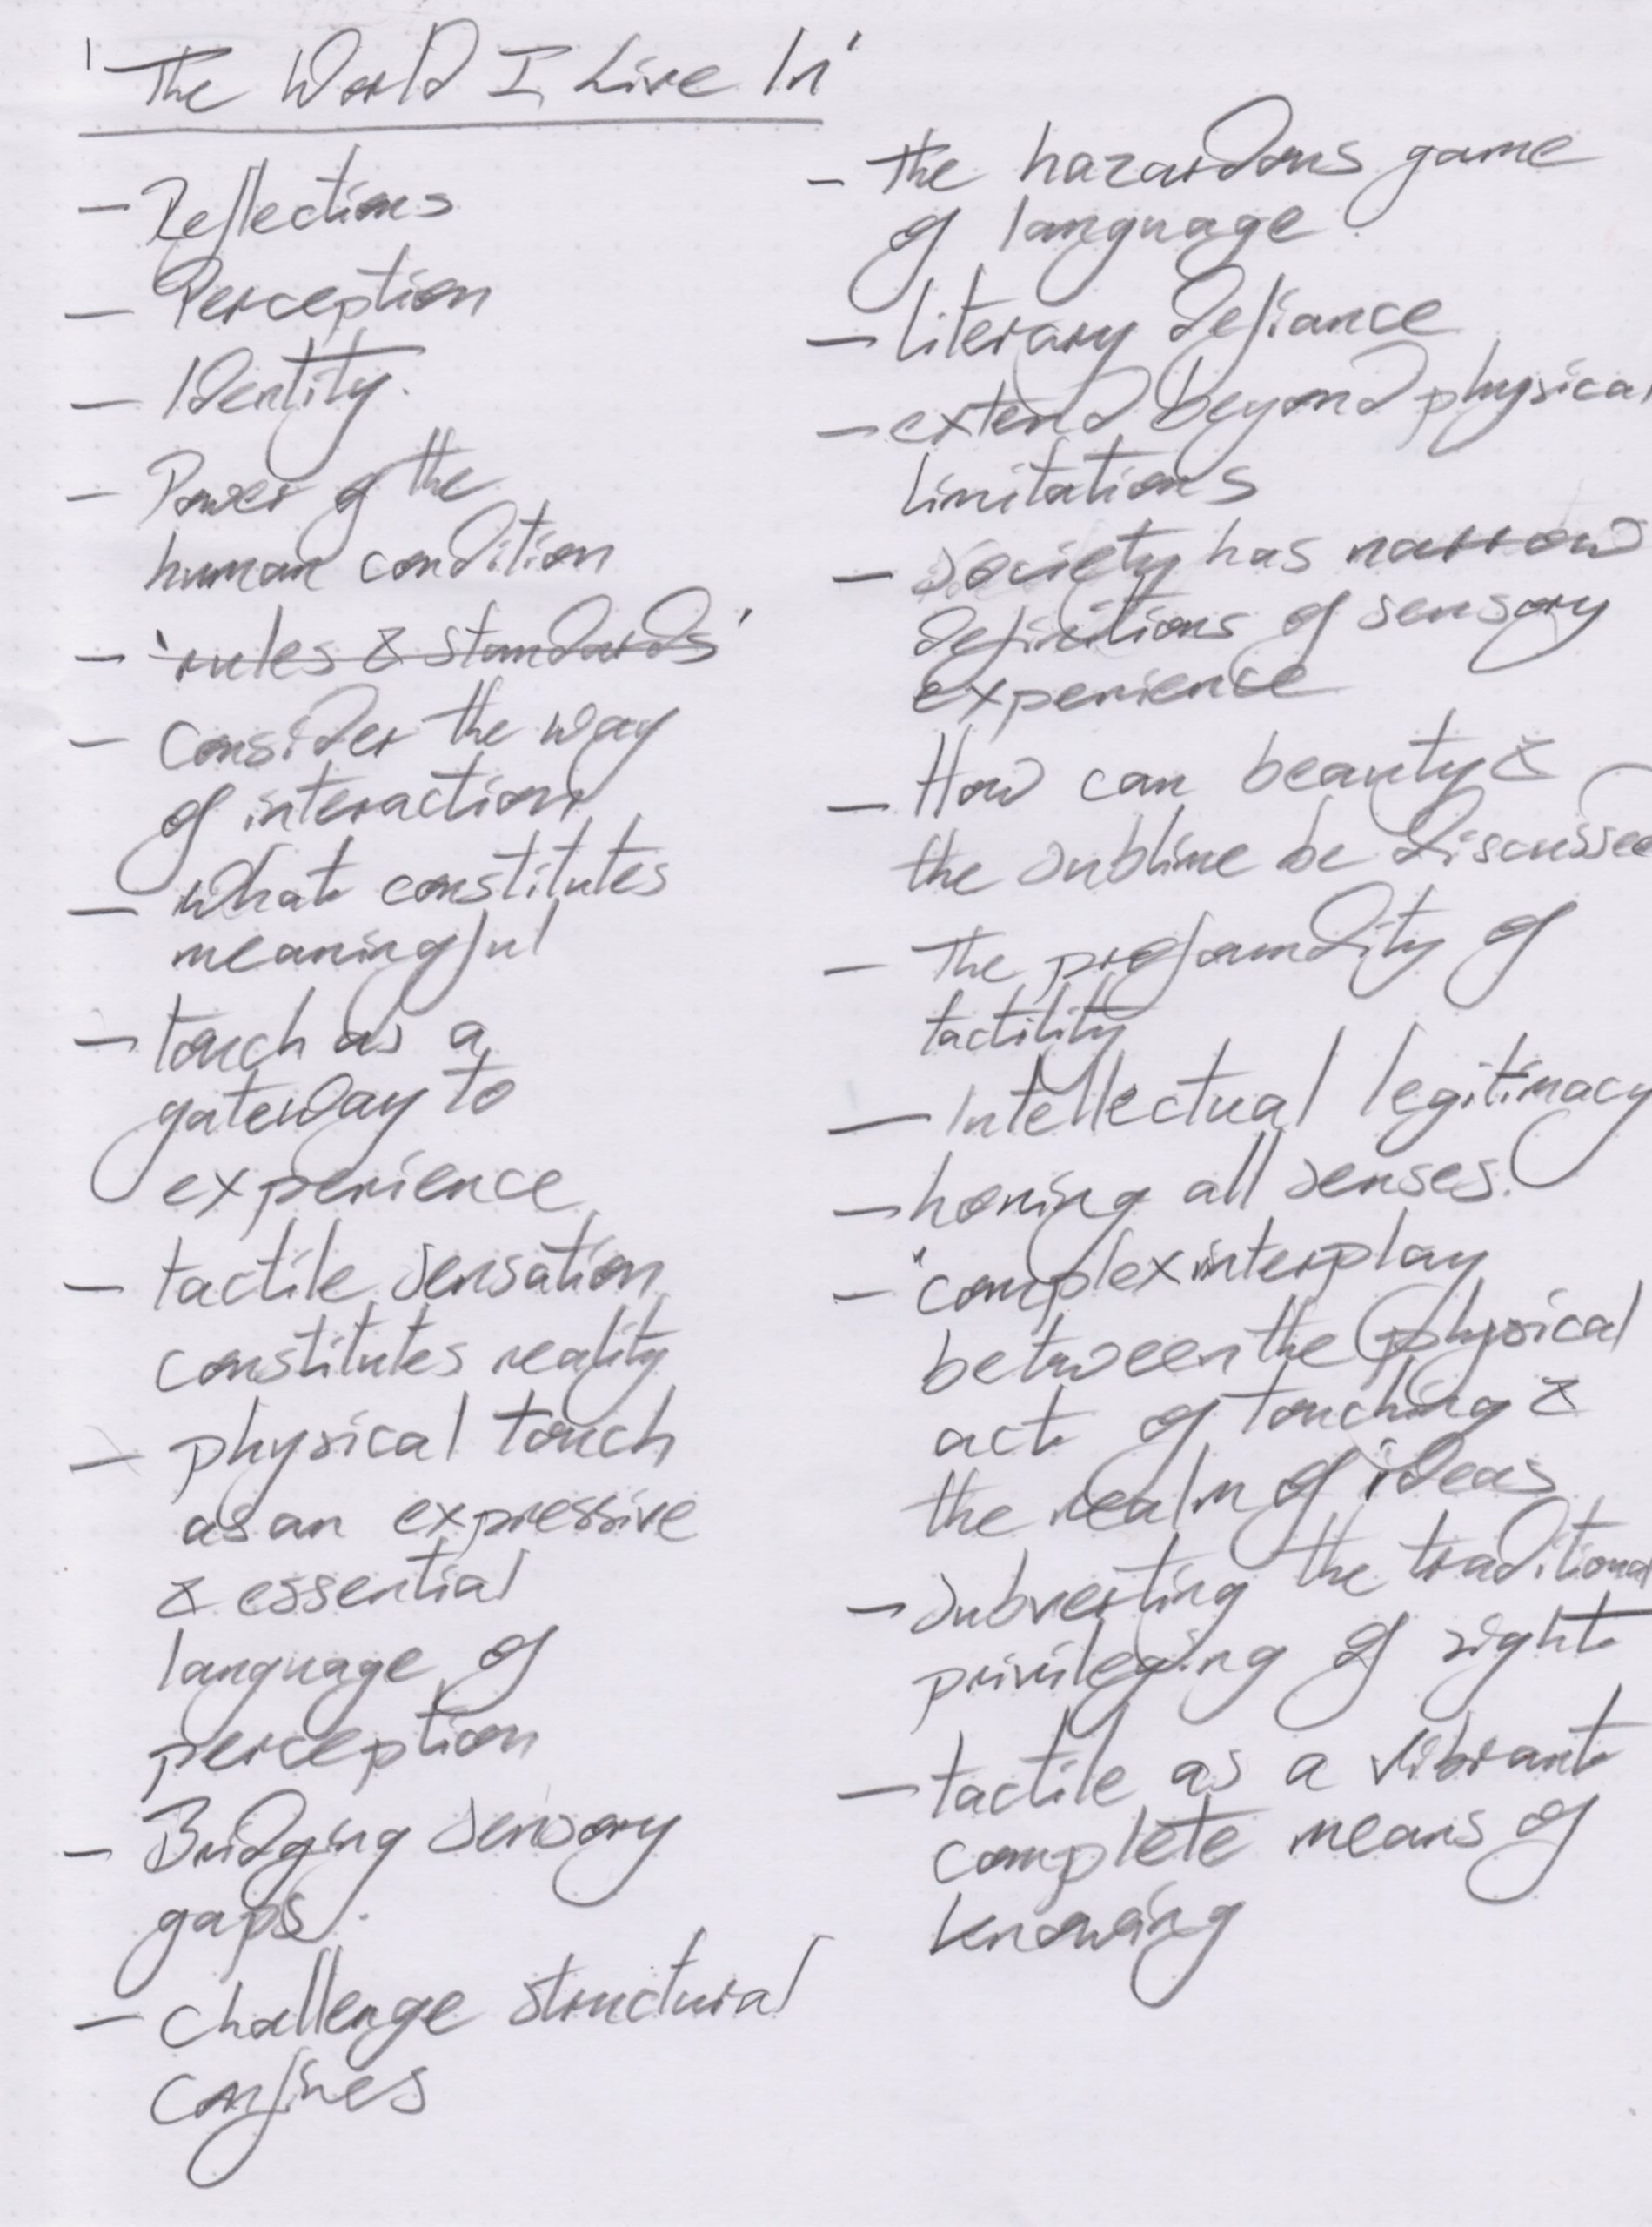 'The World I Live In'
- Reflections
- Perception
- Identity.
- Power of the
human condition
- 'rules & standards'
- Consider the way
of interaction
- What constitutes
meaningful
- touch as a
gateway to
experience
- tactile sensation
constitutes reality
- physical touch
as an expressive
& essential
language of
perception
- Bridging sensory
gaps.
- challenge structural
confines
- the hazardous game
of language
- literary defiance
- extend beyond physical
limitations
- society has narrow
definitions of sensory
experience
- How can beauty &
the sublime be discussed
- the profoundity of
tactility
- Intellectual legitimacy
- honing all senses.
- "complex interplay
between the physical
act of touching &
the realm of ideas
- subverting the traditional
privileging of sight
- tactile as a vibrant
complete means of
knowing